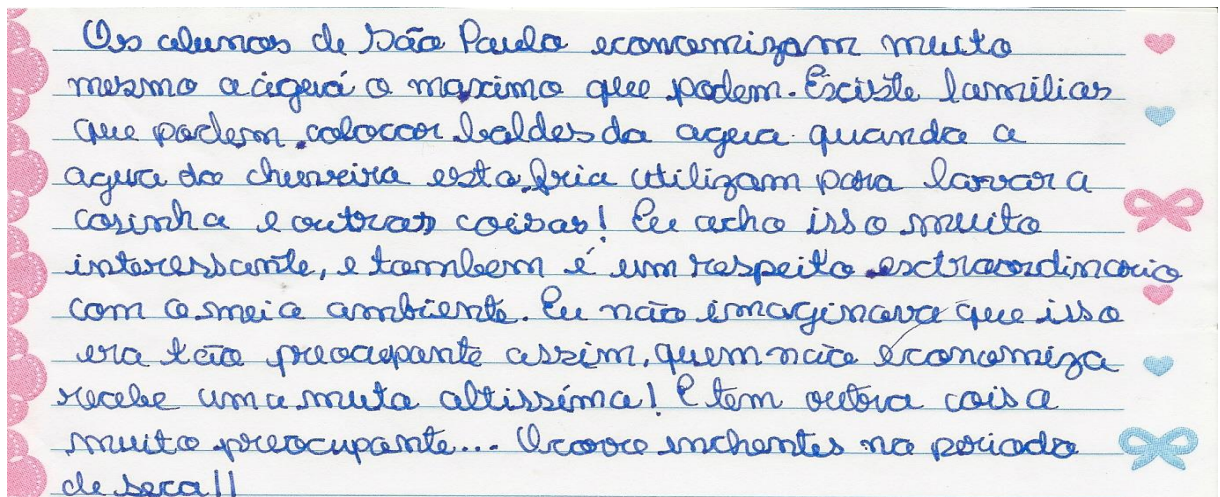 Os alunos de São Paulo economizam muito
mesmo a águá o maximo que podem. Exciste famílias
que podem coloccor baldes da agua quando a
agua do chuveiro esta fria utilizam para lavar a
cosinha e outras coisas! Eu acho isso muito
interessante, e tambem é um respeito esctraordinario
com o meio ambiente. Eu não imaginava que isso
era tão preocupante assim, quem não economiza
recebe uma muta altissíma! E tem outra coisa
muito preocupante... Ocorre inchentes no periodo
de seca!!